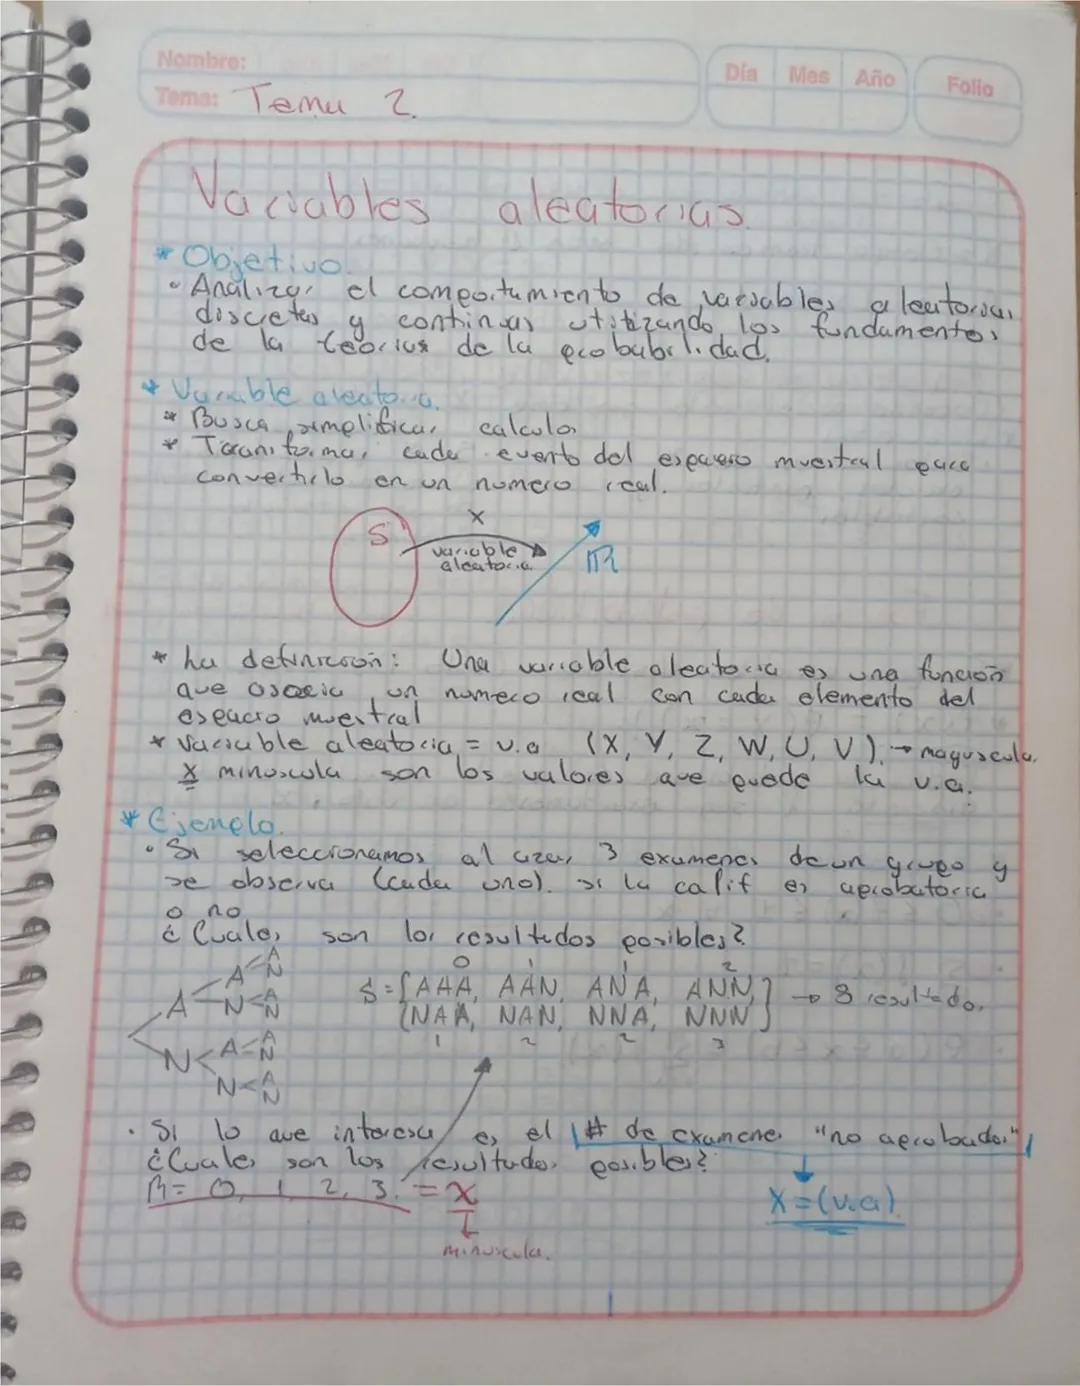 Nombre:
Día Mes Año Folio
Tema: Tema 2.
Variables aleatorias.
* Objetivo.
• Analizar el comportamiento de variables aleatorias
discretas y continuas utilizando los fundamentos
de la teorias de la probabilidad.
* Variable aleatoria.
* Busca simplificar calculos
* Transformar cada evento del espacio muestral para
convertirlo en un numero real.
S X
variable
aleatoria
ℝ
* La definición: Una variable aleatoria es una función
que asocia un numero real con cada elemento del
espacio muestral
* Variable aleatoria = v.a (X, Y, Z, W, U, V). → mayuscula.
x minuscula son los valores que puede la v.a.
* Ejemplo.
• Si seleccionamos al azar 3 examenes de un grupo y
se observa (cada uno). si la calif es aprobatoria
o no
¿Cuales son los resultados posibles?
A N A N A N A N A N A N A N
0 1 1 2
S = {AAA, AAN, ANA, ANN, → 8 resultados.
NAA, NAN, NNA, NNN}
1 2 2 3
• Si lo que interesa es el # de examenes "no aprobados"
¿Cuales son los resultados posibles?
R = 0, 1, 2, 3. = x
X = (v.a)
minuscula.